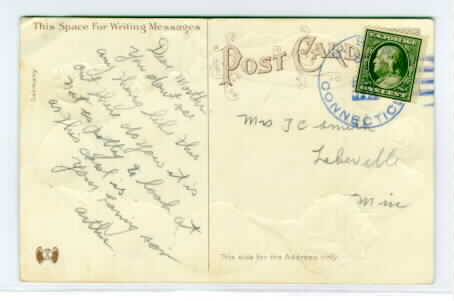 This Space For Writing Messages
Germany
Dear Mother
You don't see
any thing like this
out there do you it is
not so pretty to look at
as this card is
Your loving son
Arthur
POST CARD
U.S. POSTAGE
ONE CENT
CONNECTICUT
Mrs J C Smith
Lakeville
Minn
This side for the Address only.